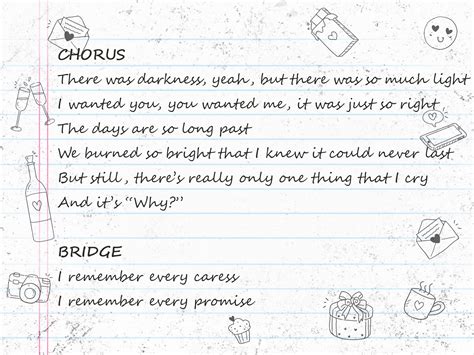 CHORUS
There was darkness, yeah, but there was so much light
I wanted you, you wanted me, it was just so right
The days are so long past
We burned so bright that I knew it could never last
But still, there's really only one thing that I cry
And it's "Why?"
BRIDGE
I remember every caress
I remember every promise